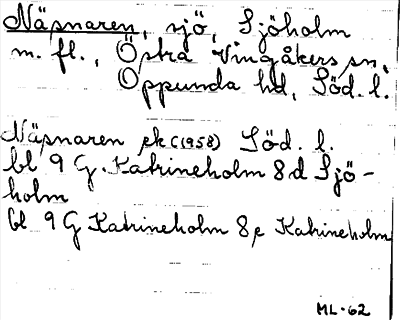 Näsnaren, sjö, Sjöholm
m. fl., Östra Vingåkers sn,
Oppunda hd, Söd. l.
Näsnaren ek (1958) Söd. l.
bl 9 G. Katrineholm 8 d Sjö-
holm
bl 9 G Katrineholm 8 e Katrineholm
ML-62